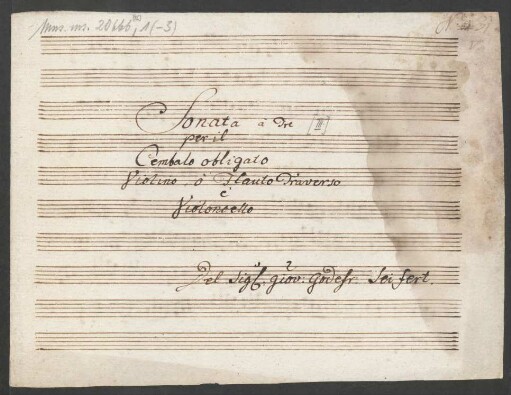 Mus. ms. 20666, 1(-3)
Sonata à Tre [III]
per il
Cembalo obligato
Violino, ò Flauto Traverso
è
Violoncello
Del Sigr: giov: Godefr: Seifert.